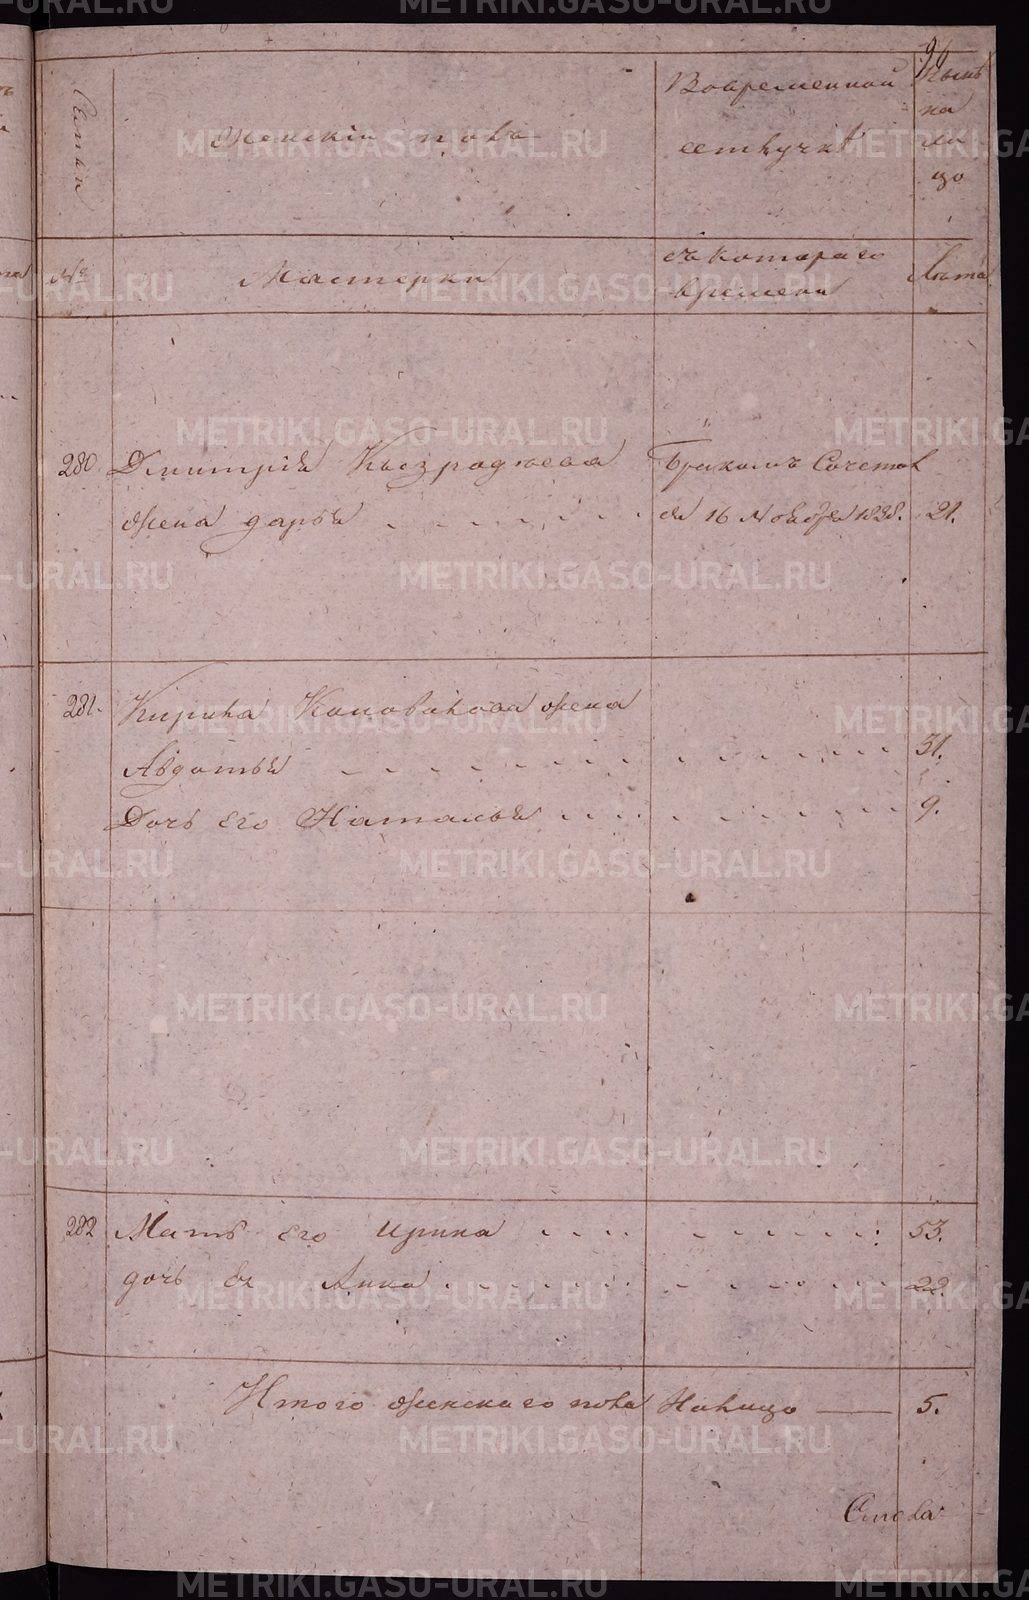 96
Семьи
Женскiй полъ
Во временной
отлучкѣ
Нынѣ
на
ли
цо
№
Мастерки
съ котораго
времени
Лѣта
280.
Дмитрiя
Браколъ Сочетав
жена дарья
ся 16 Ноября 1838.
21.
281.
Кирила Коновалова жена
Авдотья
31.
Дочь Его Наталья
9.
282
Мать Его Ирина
53.
дочь Ея Анна
22.
Итого женскаго пола Налицо
5.
METRIKI.GASO-URAL.RU